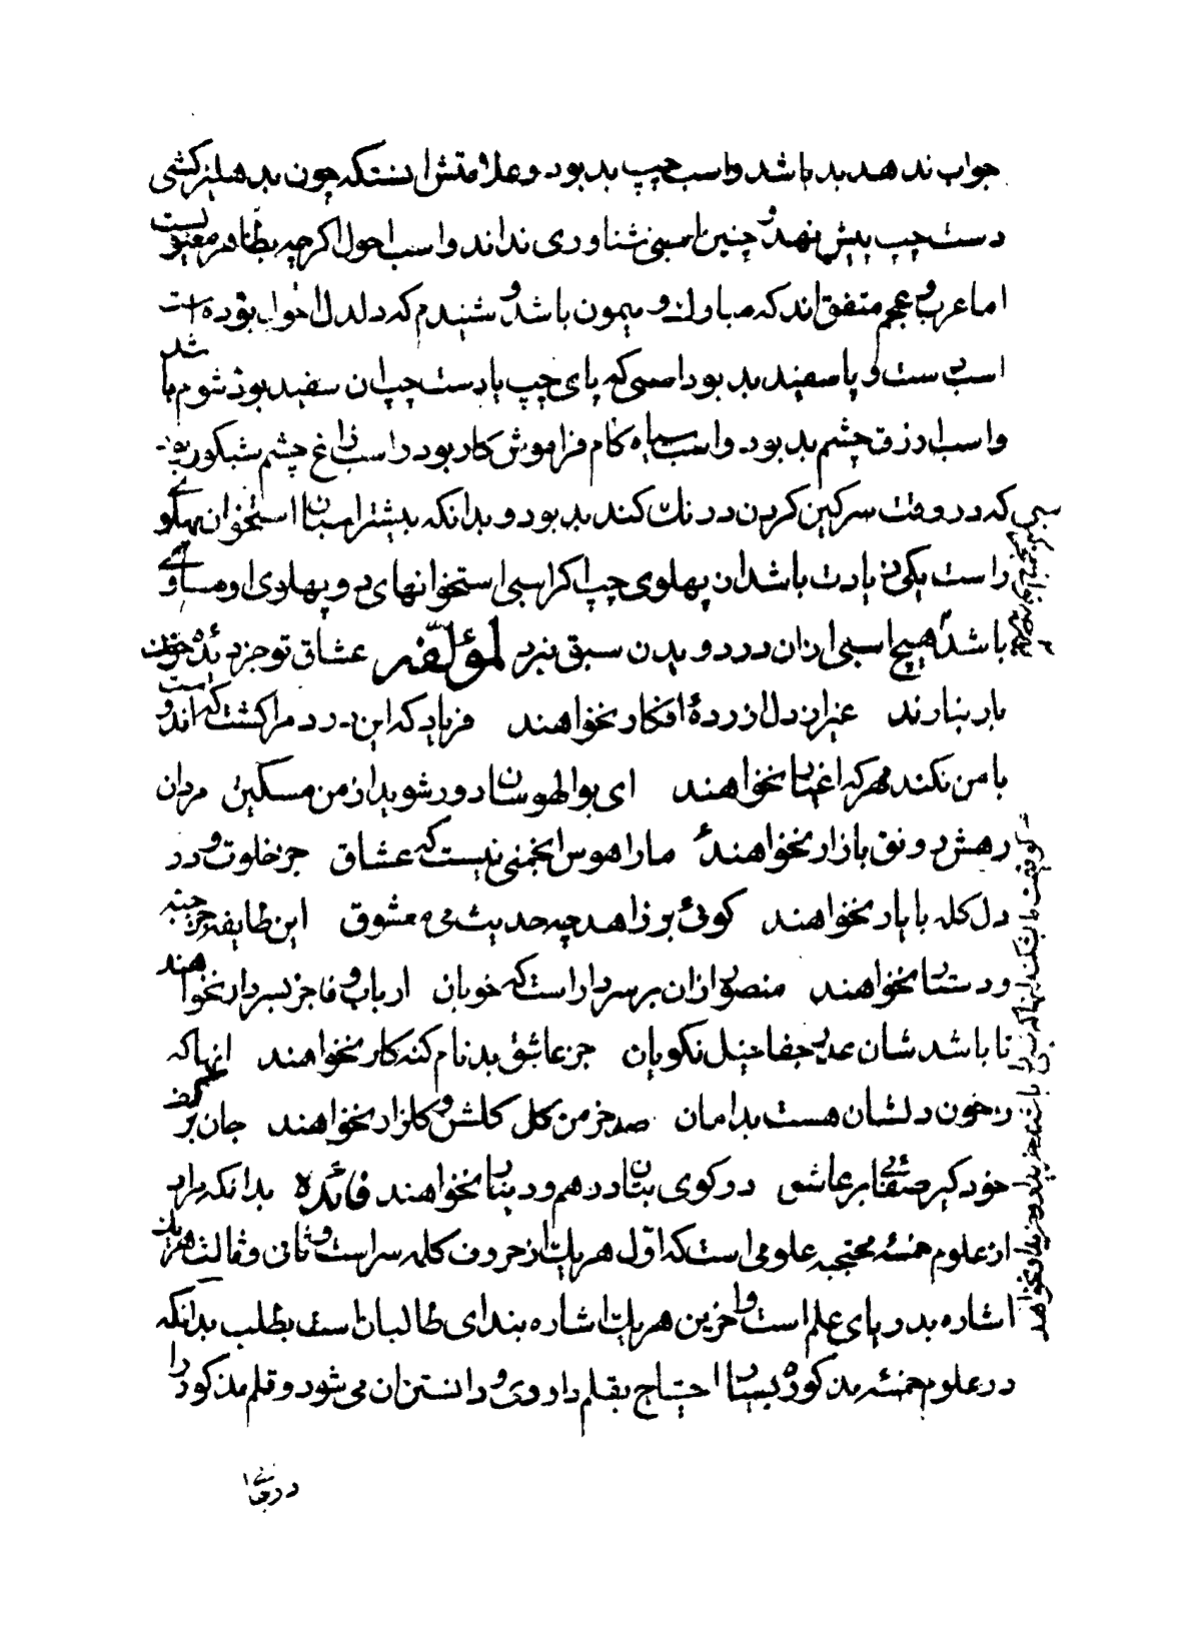 جواب ندهد بد باشد واسب چپ بد بود وعلامتش انستکه چون بدهلیز کشی
دست چپ پیش نهد و چنین اسبی شناوری نداند واسب احول اکرچه بظاهر معیوبست
اما عرب و عجم متفق اند که مبارك و میمون باشد و شنیدم که دلدل احول بوده است
اسب ست و پا سفید بد بود اسبی که پای چپ یا دست چپ ان سفید بود شوم باشد
واسب ازرق چشم بد بود واسب سیاه کام فراموش کار بود واسب زاغ چشم شبکور بود
سبی که در وقت سرکین کردن درنك کند بد بود و بدانکه بیشتر اسبان استخوان پهلوی
راست یکی زیادت باشد از پهلوی چپ اکر اسبی استخوانهای دو پهلوی او مساوی
باشد هیچ اسبی از ان در دویدن سبق نبرد لمؤلفه عشاق تو جز دیدۀ خونبار
یار نیارند غیر از دل ازردۀ افکار نخواهند فریاد که این درد مرا کشت که است اندوه
با من نکند مهر که اغیار نخواهند ای بوالهوسان دور شوید از من مسکین مردان
رهش رونق بازار نخواهند ما را هوس انجمنی نیست که عشاق جز خلوت و در
دل کله با یار نخواهند کوئی بر زاهد چه حدیث می و معشوق این طایفه جز جبه
و دستار نخواهند منصور ازان بر سر دار است که خوبان ارباب وفا جز بسر دار نخواهند
تا باشد شان عذر جفا خیل نکویان جز عاشق بدنام کنه کار نخواهند انها که
ز خون دلشان هست بدامان صد خرمن کل کلشن و کلزار نخواهند جان بر کف
خود کیر صفائی بر عاشق در کوی بتان درهم و دینار نخواهند فائده بدانکه مراد
از علوم خمسه محتجبه علومی است که اول هر یك از حروف کله سر است و ثانی و ثالث هر یك
اشاره بدریای علم است و اخرین هر یك اشاره بندای طالبان است بطلب بدانکه
در علوم خمسه مذکوره بسیار احتیاج بقلم داودی و دانستن ان می شود و قلم مذکور را
در جائی